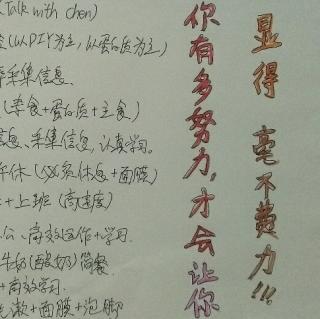 Talk with chen)
(以DIY为主,以蛋白质为主)
采集信息.
(素食+蛋白质+主食)
信息、采集信息,认真学习.
午休(休息+面膜)
+上班(高速度)
高效运作+学习.
牛奶(酸奶)简餐
+高效学习.
洗漱+面膜+泡脚
你有多努力,才会让你
显得 毫不费力!!!